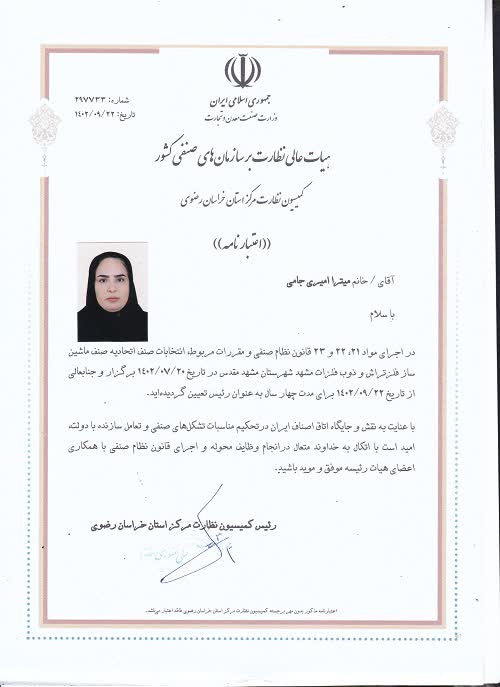 جمهوری اسلامی ایران
وزارت صنعت معدن و تجارت
شماره: ۲۹۷۷۳۳
تاریخ: ۱۴۰۲/۰۹/۲۲
هیات عالی نظارت بر سازمان های صنفی کشور
کمیسیون نظارت مرکز استان خراسان رضوی
((اعتبار نامه))
آقای / خانم میترا امیری جامی
با سلام
در اجرای مواد ۲۱، ۲۲ و ۲۳ قانون نظام صنفی و مقررات مربوط، انتخابات صنف اتحادیه صنف ماشین
ساز فلزتراش و ذوب فلزات مشهد شهرستان مشهد مقدس در تاریخ ۱۴۰۲/۰۷/۲۰ برگزار و جنابعالی
از تاریخ ۱۴۰۲/۰۹/۲۲ برای مدت چهار سال به عنوان رئیس تعیین گردیده‌اید.
با عنایت به نقش و جایگاه اتاق اصناف ایران در تحکیم مناسبات تشکل‌های صنفی و تعامل سازنده با دولت،
امید است با اتکال به خداوند متعال در انجام وظایف محوله و اجرای قانون نظام صنفی با همکاری
اعضای هیات رئیسه موفق و موید باشید.
رئیس کمیسیون نظارت مرکز استان خراسان رضوی
اعتبارنامه مذکور بدون مهر برجسته کمیسیون نظارت مرکز استان خراسان رضوی فاقد اعتبار می‌باشد.